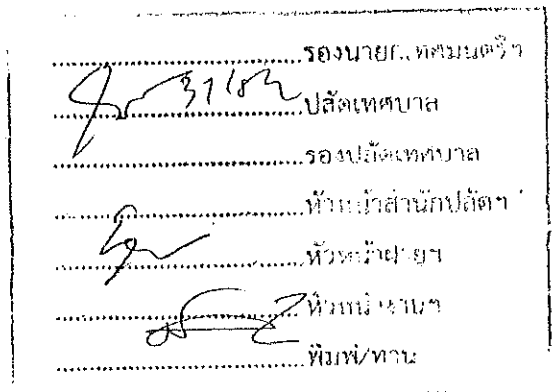 ....................รองนายก เทศมนตรีฯ
....................ปลัดเทศบาล
....................รองปลัดเทศบาล
....................หัวหน้าสำนักปลัดฯ
....................หัวหน้าฝ่ายฯ
....................หัวหน้างานฯ
....................พิมพ์/ทาน